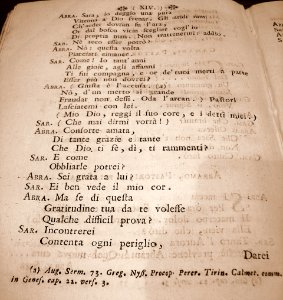 ( XIV. )
ABRA. Sara, io deggio una pura
Vittima a Dio svenar. Gli aridi rami,
Ch'arder dovran su l'ara,
Or dal bosco vicin scegliet vogl'io
Di propria man. Non trattenermi: addio.
SAR. Nè teco esser potrò?
ABRA. Nò: questa volta
Piacciati rimaner.
SAR. Come! Io tant'anni
Alle gioje, agli affanni
Ti fui compagna, e or de' tuoi merti a parte
Esser più non dovrò?
ABRA. ( Giusta è l'accusa. (2)
Nò, d'un merto sì grande
Fraudar non dessi. Oda l'arcan.) Pastori
Lasciatemi con lei.
( Mio Dio, reggi il suo core, e i detti miei.)
SAR. ( Che mai dirmi vorrà! )
ABRA. Consorte amata,
Di tante grazie e tante
Che Dio, ti fè, dì, ti rammenti?
SAR. E come
Obbliarle potrei?
ABRA. Sei grata a lui?
SAR. Ei ben vede il mio cor.
ABRA. Ma se di questa
Gratitudine tua da te volesse
Qualche difficil prova?
SAR. Incontrerei
Contenta ogni periglio,
Darei
(2) Aug. Serm. 73. Greg. Nyss. Procop. Perer. Tirin. Calmet. comm.
in Genes. cap. 22. vers. 3.